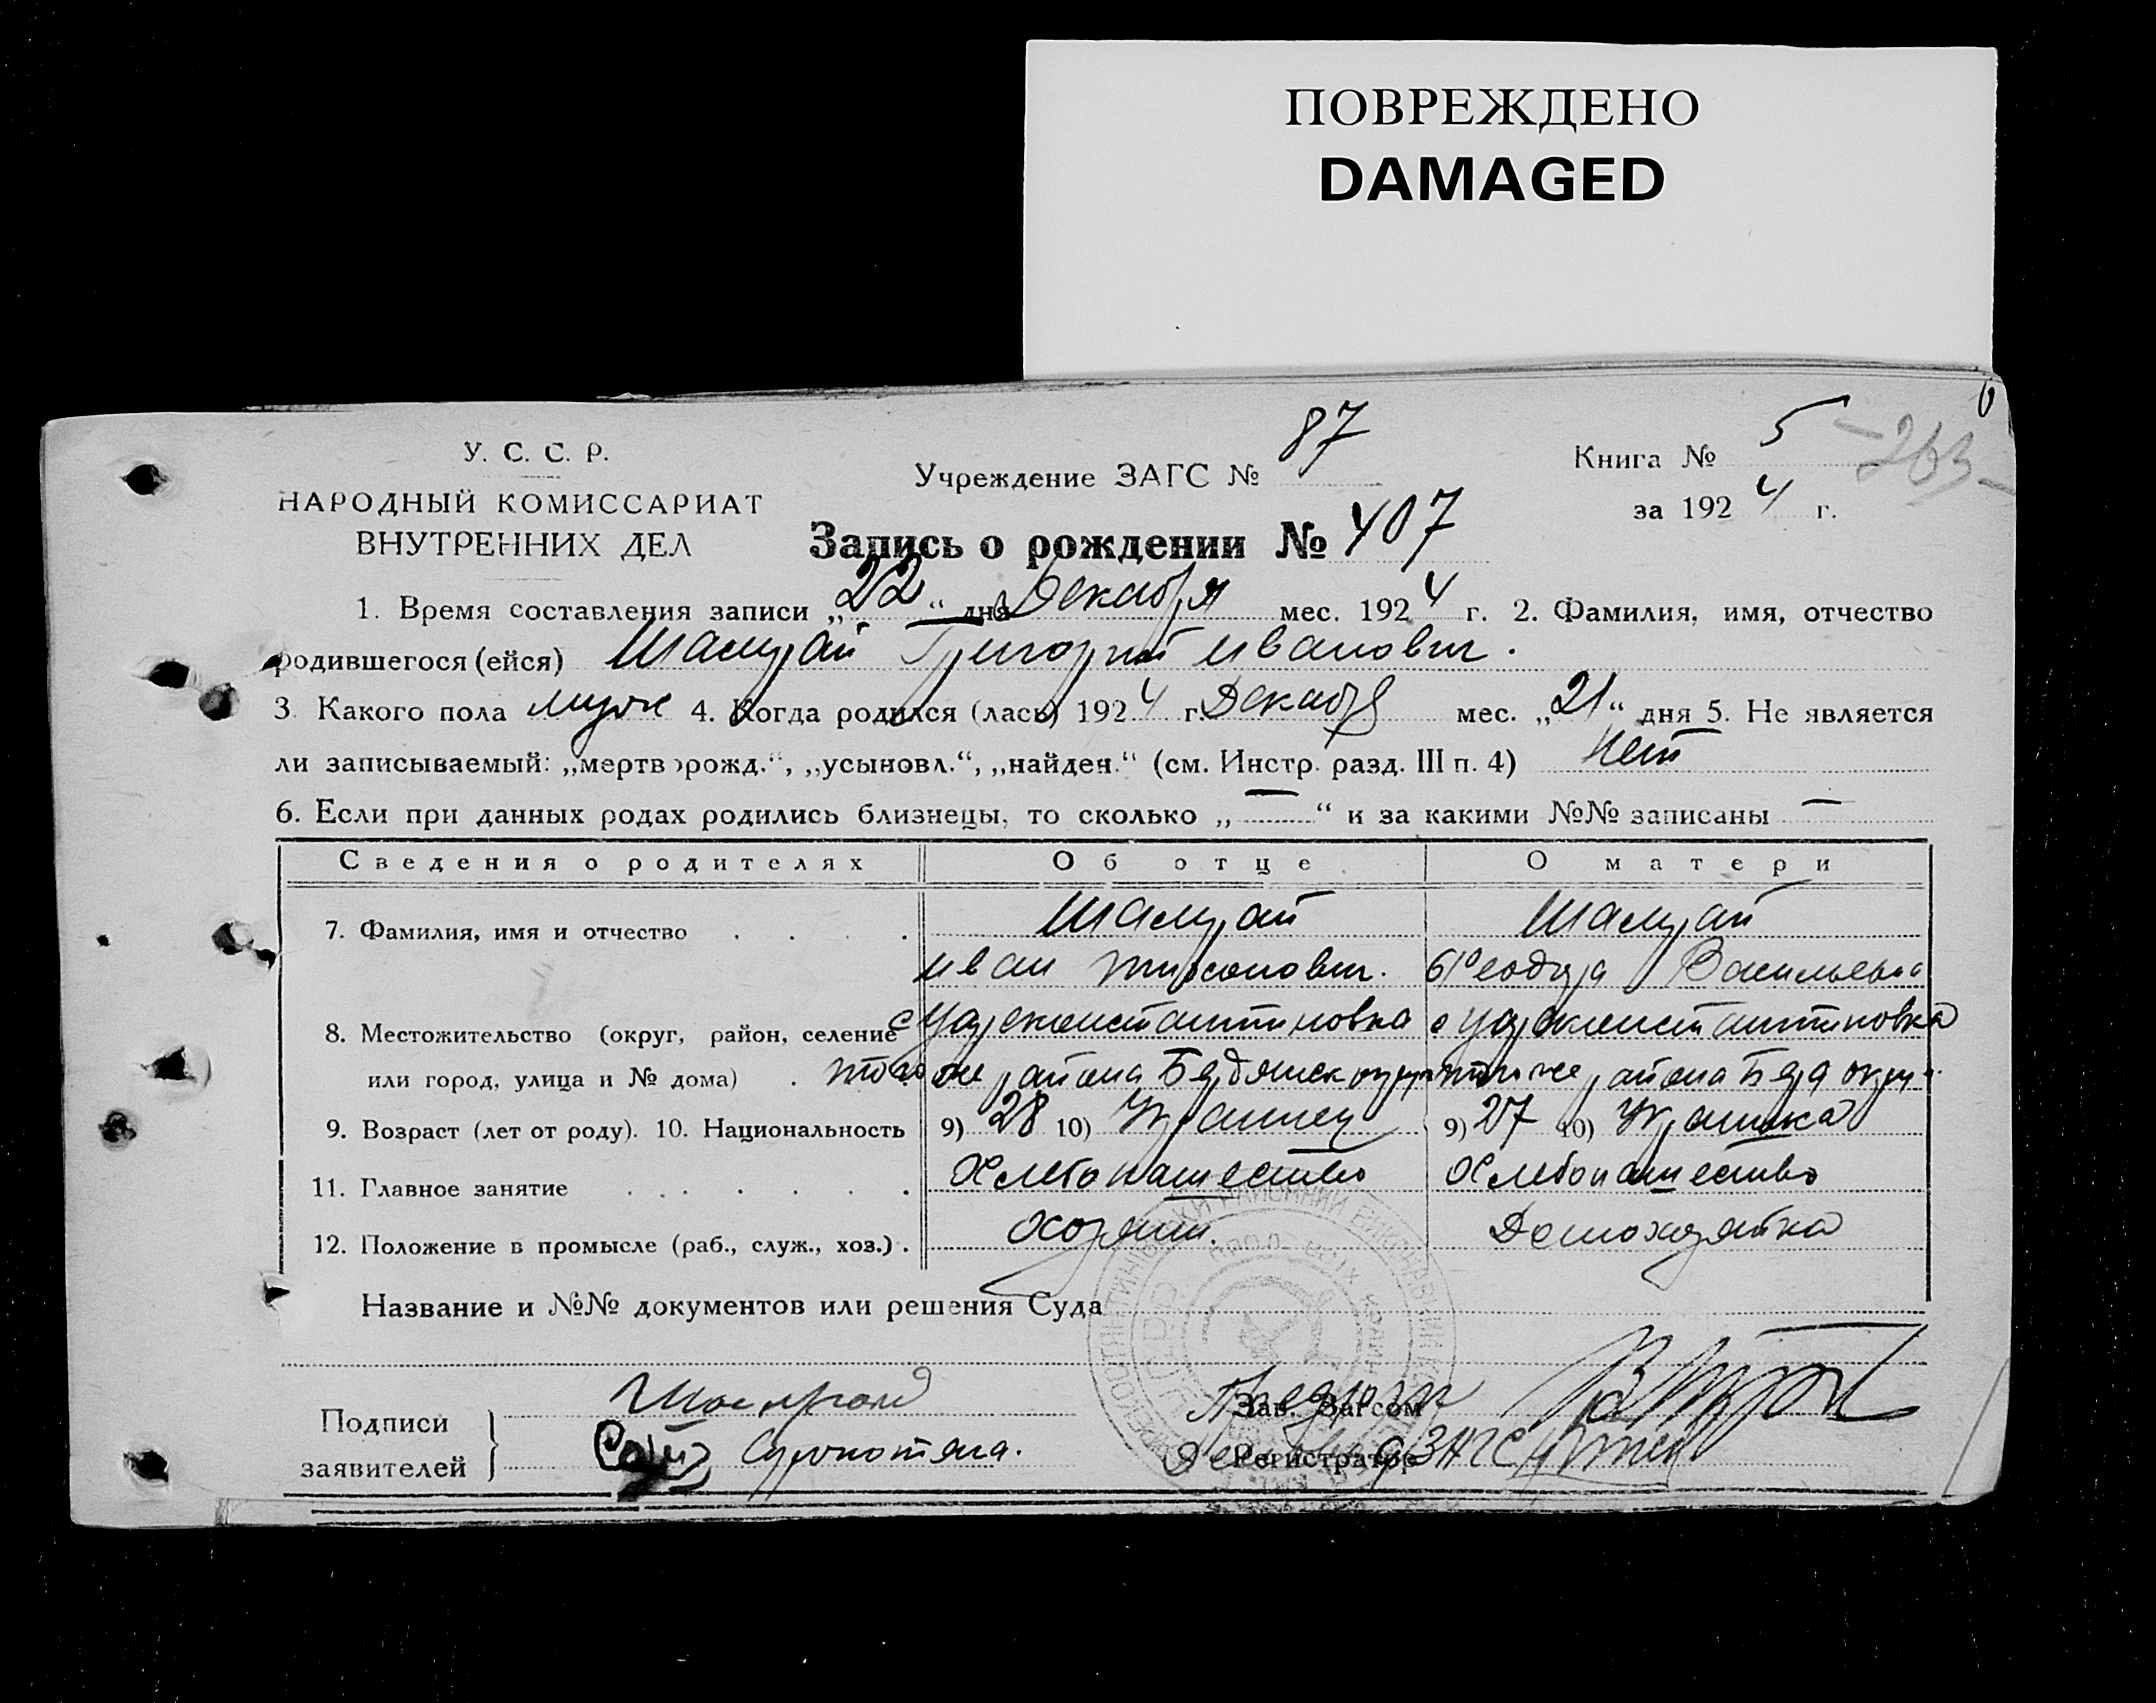 ПОВРЕЖДЕНО
DAMAGED
У. С. С. Р.
НАРОДНЫЙ КОМИССАРИАТ
ВНУТРЕННИХ ДЕЛ
Учреждение ЗАГС № 87
Книга № 5
- 263 -
за 1924 г.
Запись о рождении № 407
1. Время составления записи „22“ дня Декабря мес. 1924 г. 2. Фамилия, имя, отчество
родившегося (ейся) Шамрай Григорий Иванович.
3. Какого пола муж 4. Когда родился (лась) 1924 г. Декабря мес. „21“ дня 5. Не является
ли записываемый: „мертворожд.“, „усыновл.“, „найден.“ (см. Инстр. разд. III п. 4) Нет
6. Если при данных родах родились близнецы, то сколько „—“ и за какими №№ записаны —
Сведения о родителях Об отце О матери
7. Фамилия, имя и отчество Шамрай Шамрай
Иван Васильевна
8. Местожительство (округ, район, селение с Цареконстантиновка с Цареконстантиновка
или город, улица и № дома) того же района Бердянск округа того же района Берд округа
9. Возраст (лет от роду). 10. Национальность 9) 28 10) Украинец 9) 27 10) Украинка
11. Главное занятие Хлебопашество Хлебопашество
12. Положение в промысле (раб., служ., хоз.) Хозяин. Домохозяйка
Название и №№ документов или решения Суда
Подписи
заявителей
Шамрай
Зав. Загсом
Регистратор ЗАГС